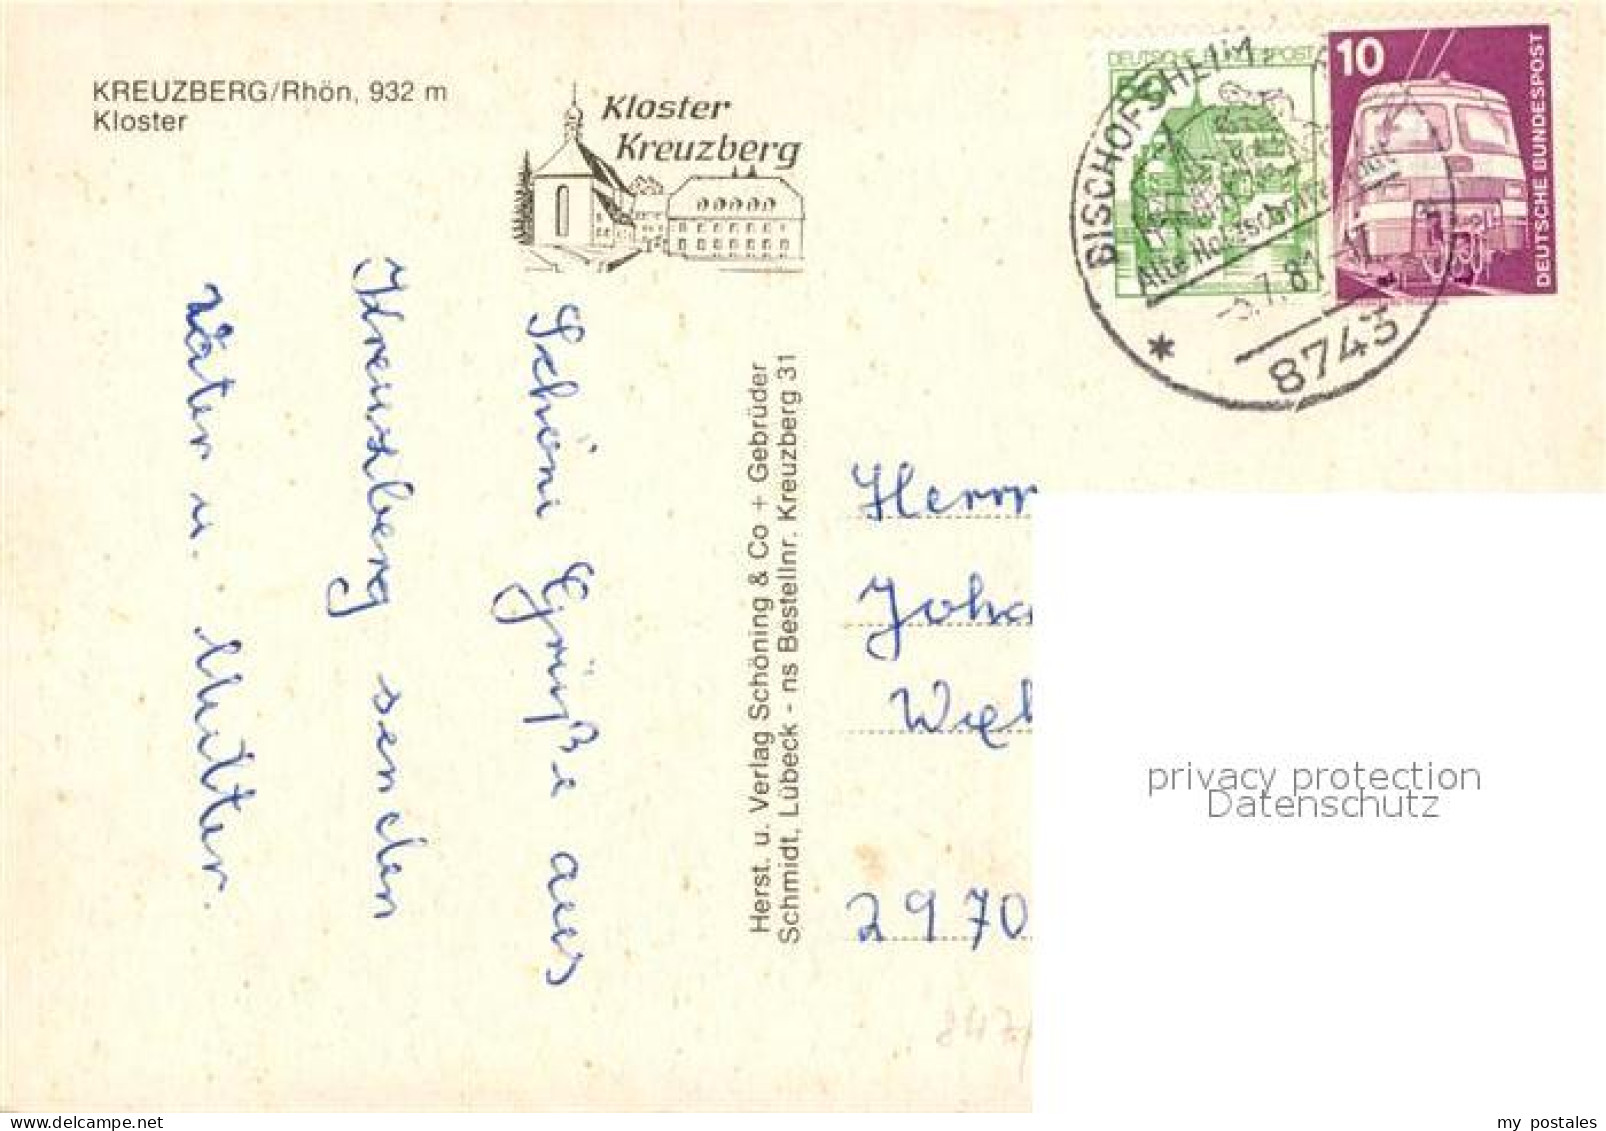 KREUZBERG/Rhön, 932 m
Kloster
Kloster
Kreuzberg
DEUTSCHE BUNDESPOST
10
DEUTSCHE BUNDESPOST
BISCHOFSHEIM
Alte Holzschnitzerstadt
7.81-17
8743
Schöne Grüße aus
Kreuzberg senden
Vater u. Mutter.
Herst. u. Verlag Schöning & Co + Gebrüder
Schmidt, Lübeck - ns Bestellnr. Kreuzberg 31
Herrn
Joha
2970
privacy protection
Datenschutz
my postales